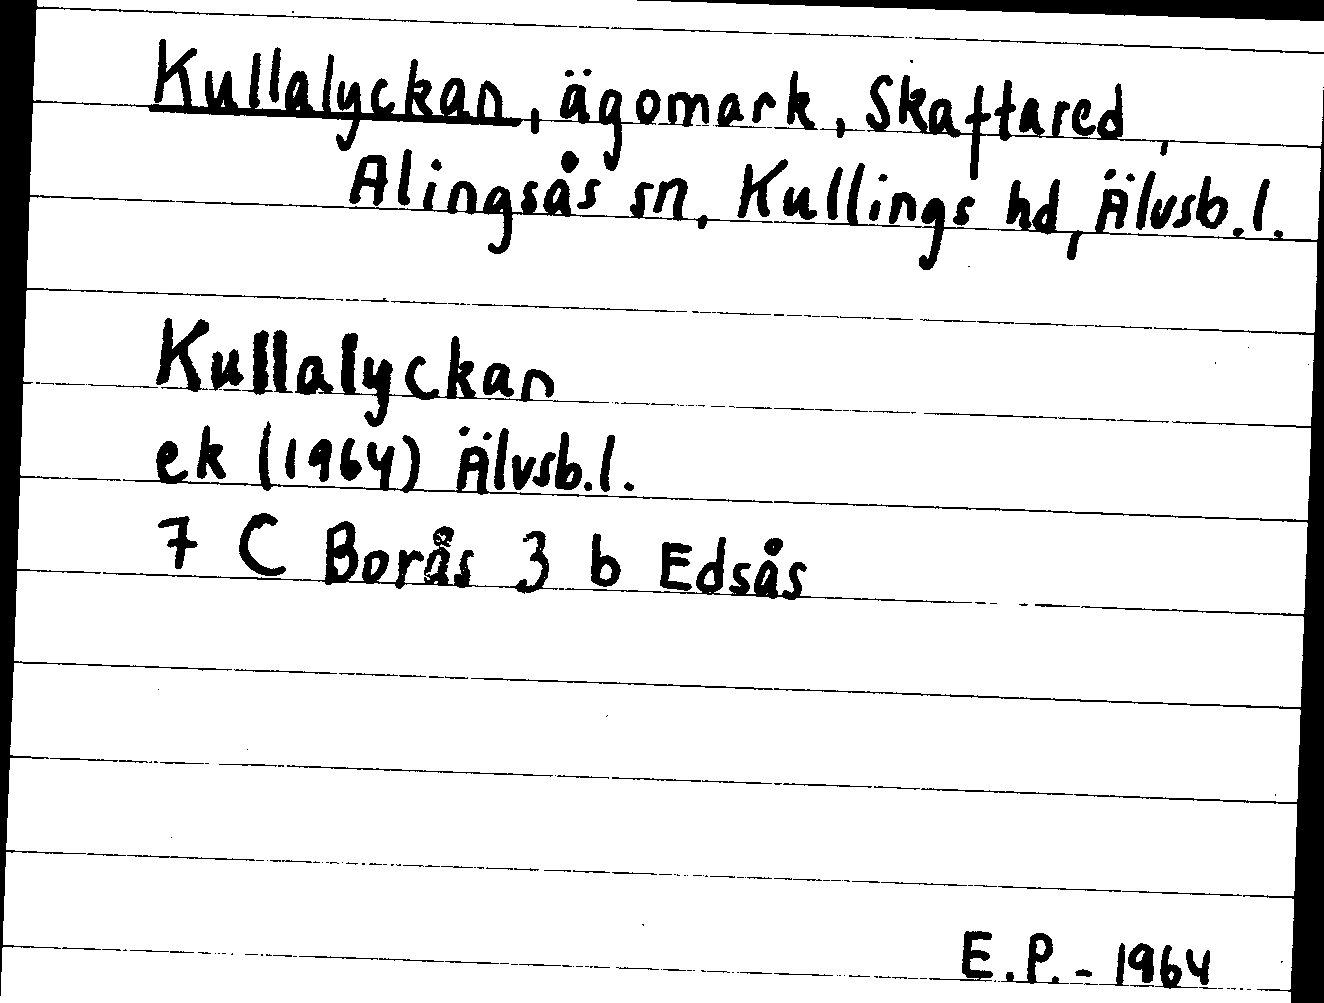 Kullalyckan, ägomark, Skaftared,
Alingsås sn, Kullings hd, Älvsb.l.
Kullalyckan
ek (1964) Älvsb.l.
7 C Borås 3 b Edsås
E.P. - 1964